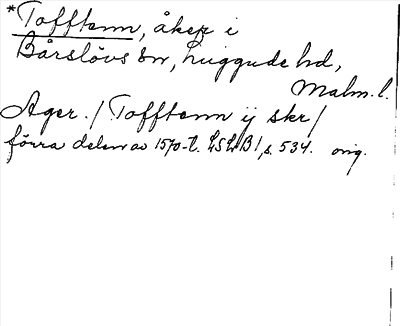 *Tofftenn, åker i
Bårslövs sn, Luggude hd,
Malm. l.
Ager. / Tofftenn ij skr /
förra delen av 1570-t. LSLB1, s. 534. orig.